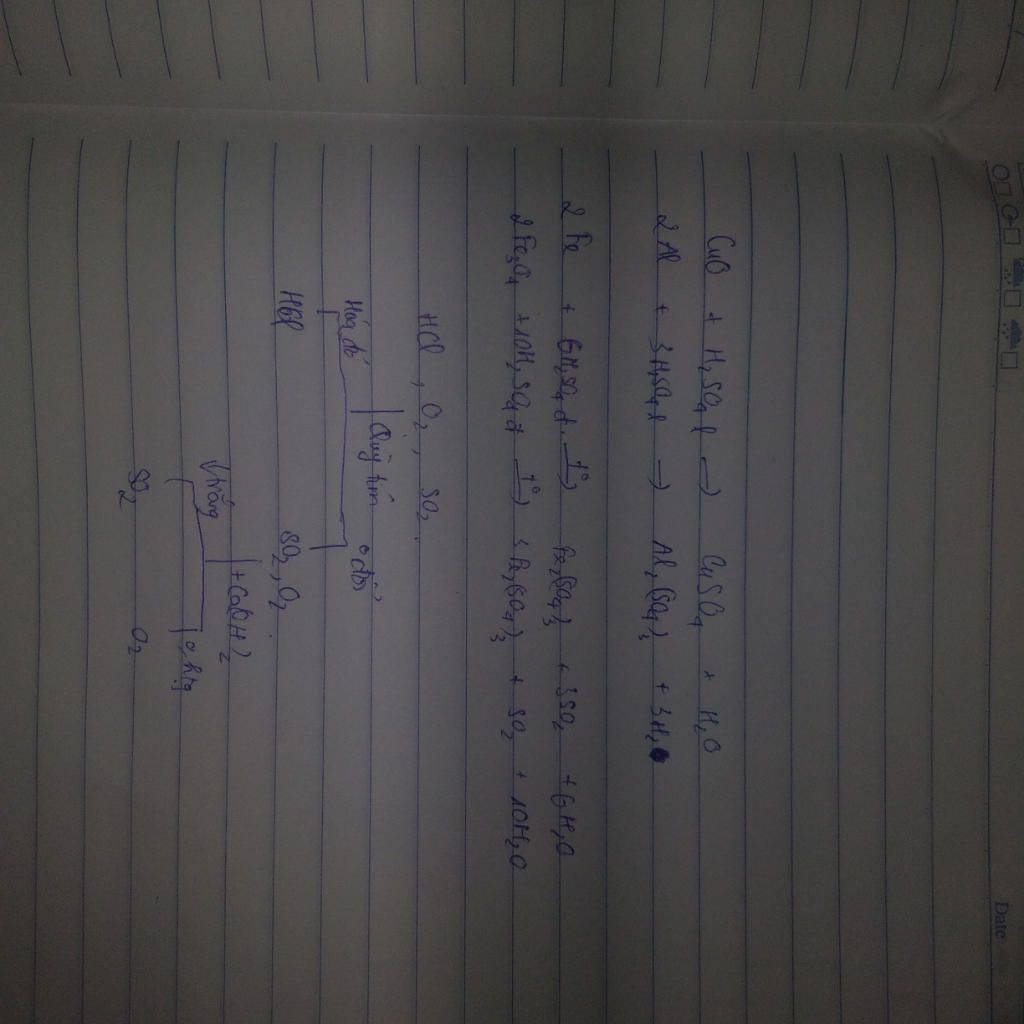 Date
CuO + H₂SO₄ l → CuSO₄ + H₂O
2 Al + 3H₂SO₄ l → Al₂(SO₄)₃ + 3H₂
2 Fe + 6H₂SO₄ đ. t° → Fe₂(SO₄)₃ + 3SO₂ + 6H₂O
2 Fe₃O₄ + 10H₂SO₄ đ t° → 3Fe₂(SO₄)₃ + SO₂ + 10H₂O
HCl , O₂ , SO₂.
Quỳ tím
Hóa đỏ 0 đổi
HCl SO₂, O₂
+ Ca(OH)₂
↓trắng 0 htg
SO₂ O₂